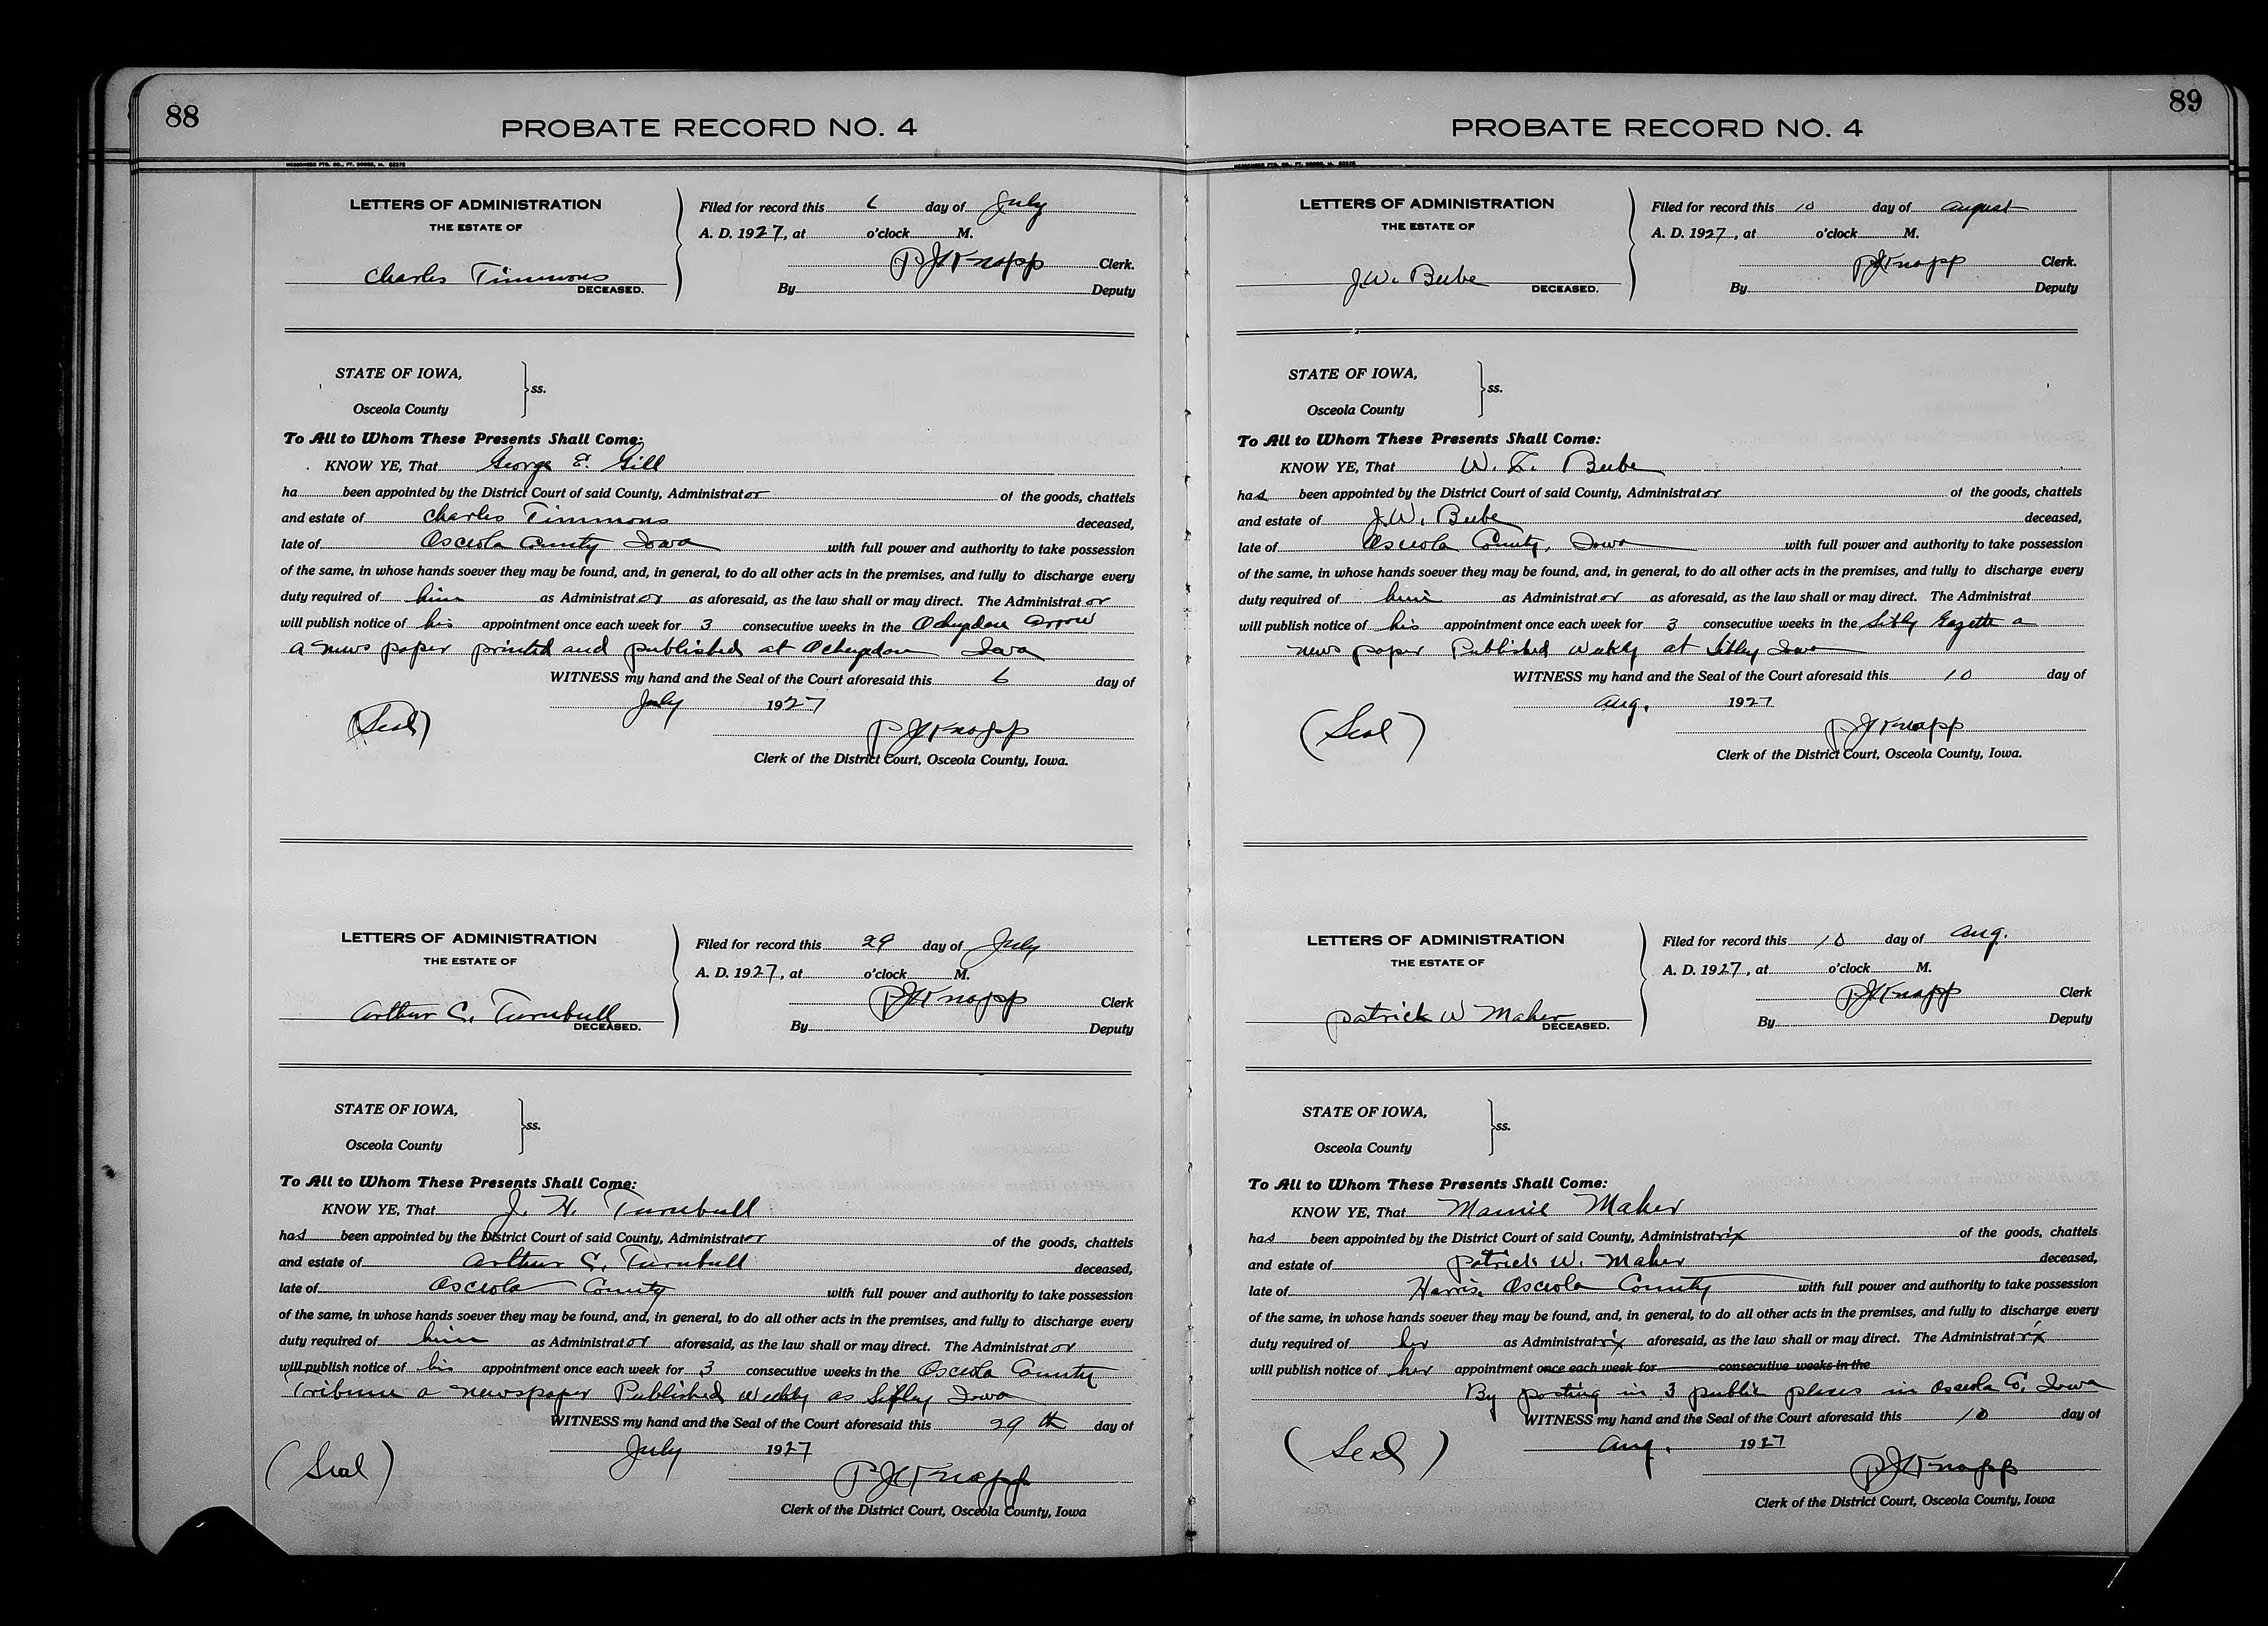 88
PROBATE RECORD NO. 4
LETTERS OF ADMINISTRATION
THE ESTATE OF
Charles Timmons
DECEASED.
Filed for record this 6 day of July
A. D. 1927, at o'clock M.
P J Knapp Clerk.
By Deputy
STATE OF IOWA,
ss.
Osceola County
To All to Whom These Presents Shall Come:
KNOW YE, That George E. Gill
ha been appointed by the District Court of said County, Administrator of the goods, chattels
and estate of Charles Timmons deceased,
late of Osceola County Iowa with full power and authority to take possession
of the same, in whose hands soever they may be found, and, in general, to do all other acts in the premises, and fully to discharge every
duty required of him as Administrator as aforesaid, as the law shall or may direct. The Administrator
will publish notice of his appointment once each week for 3 consecutive weeks in the Ocheydan Arrow
a news paper printed and published at Ocheydan Iowa
WITNESS my hand and the Seal of the Court aforesaid this 6 day of
July 1927
(Seal)
P J Knapp
Clerk of the District Court, Osceola County, Iowa.
LETTERS OF ADMINISTRATION
THE ESTATE OF
Arthur C. Turnbull
DECEASED.
Filed for record this 29 day of July
A. D. 1927, at o'clock M.
P J Knapp Clerk
By Deputy
STATE OF IOWA,
ss.
Osceola County
To All to Whom These Presents Shall Come:
KNOW YE, That J. H. Turnbull
has been appointed by the District Court of said County, Administrator of the goods, chattels
and estate of Arthur C. Turnbull deceased,
late of Osceola County with full power and authority to take possession
of the same, in whose hands soever they may be found, and, in general, to do all other acts in the premises, and fully to discharge every
duty required of him as Administrator aforesaid, as the law shall or may direct. The Administrator
will publish notice of his appointment once each week for 3 consecutive weeks in the Osceola County
Tribune a newspaper Published weekly as Sibley Iowa
WITNESS my hand and the Seal of the Court aforesaid this 29th day of
July 1927
(Seal)
P J Knapp
Clerk of the District Court, Osceola County, Iowa
89
PROBATE RECORD NO. 4
LETTERS OF ADMINISTRATION
THE ESTATE OF
J.W. Beebe DECEASED.
Filed for record this 10 day of August
A. D. 1927, at o'clock M.
P J Knapp Clerk.
By Deputy
STATE OF IOWA,
ss.
Osceola County
To All to Whom These Presents Shall Come:
KNOW YE, That W. Beebe
has been appointed by the District Court of said County, Administrator of the goods, chattels
and estate of J.W. Beebe deceased,
late of Osceola County, Iowa with full power and authority to take possession
of the same, in whose hands soever they may be found, and, in general, to do all other acts in the premises, and fully to discharge every
duty required of him as Administrator as aforesaid, as the law shall or may direct. The Administrat
will publish notice of his appointment once each week for 3 consecutive weeks in the Sibley Gazette a
news paper Published weekly at Sibley Iowa
WITNESS my hand and the Seal of the Court aforesaid this 10 day of
Aug. 1927
(Seal)
P J Knapp
Clerk of the District Court, Osceola County, Iowa.
LETTERS OF ADMINISTRATION
THE ESTATE OF
Patrick W Maher
DECEASED.
Filed for record this 10 day of Aug.
A. D. 1927, at o'clock M.
P J Knapp Clerk
By Deputy
STATE OF IOWA,
ss.
Osceola County
To All to Whom These Presents Shall Come:
KNOW YE, That Mamie Maher
has been appointed by the District Court of said County, Administratrix of the goods, chattels
and estate of Patrick W. Maher deceased,
late of Harris, Osceola County with full power and authority to take possession
of the same, in whose hands soever they may be found, and, in general, to do all other acts in the premises, and fully to discharge every
duty required of her as Administratrix aforesaid, as the law shall or may direct. The Administratrix
will publish notice of her appointment once each week for consecutive weeks in the
By posting in 3 public places in Osceola Co, Iowa
WITNESS my hand and the Seal of the Court aforesaid this 10 day of
Aug. 1927
(Seal)
P J Knapp
Clerk of the District Court, Osceola County, Iowa